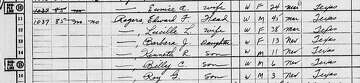 Eunice A. wife W F 24 mar Texas
1037 85 no Rogers Edward F. Head W M 45 mar Texas
Lucille L. wife W F 38 mar Texas
Barbara J. Daughter W F 13 Nev Texas
Kenneth R. Son W M 11 Nev Texas
Billy C. Son W M 6 Nev Texas
Roy G. Son W M 3 Nev Texas